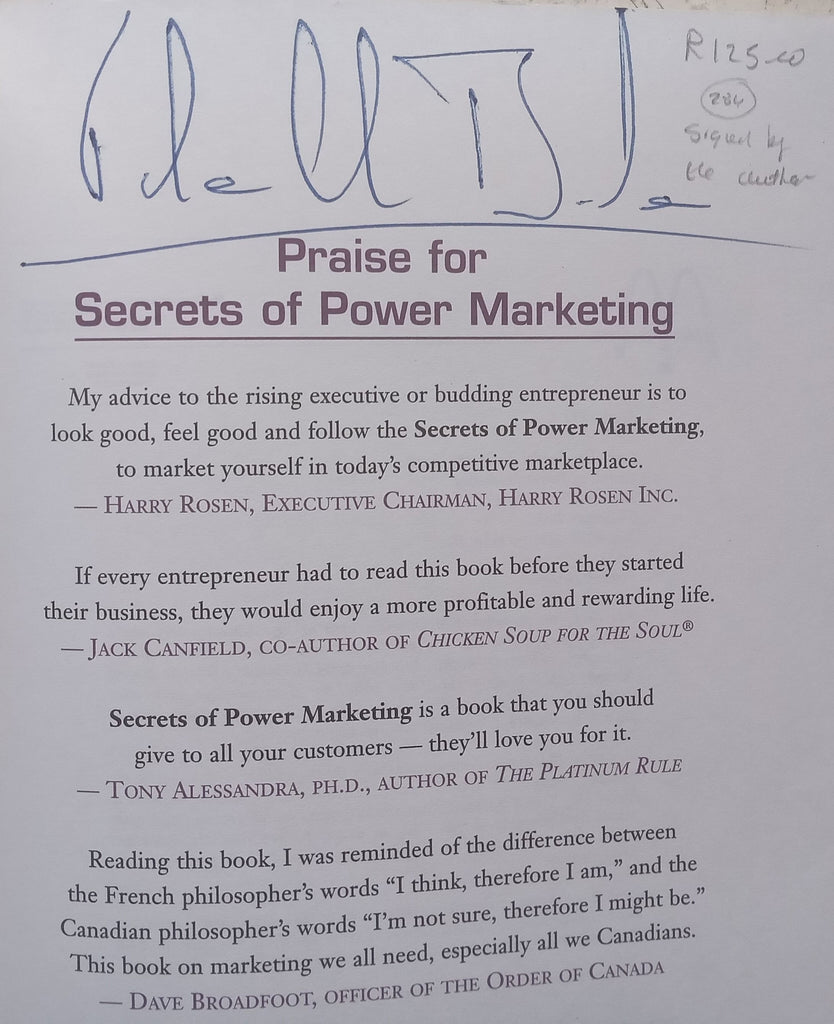 R125-00
284
Signed by
the author
Praise for
Secrets of Power Marketing
My advice to the rising executive or budding entrepreneur is to
look good, feel good and follow the Secrets of Power Marketing,
to market yourself in today's competitive marketplace.
— HARRY ROSEN, EXECUTIVE CHAIRMAN, HARRY ROSEN INC.
If every entrepreneur had to read this book before they started
their business, they would enjoy a more profitable and rewarding life.
— JACK CANFIELD, CO-AUTHOR OF CHICKEN SOUP FOR THE SOUL®
Secrets of Power Marketing is a book that you should
give to all your customers — they'll love you for it.
— TONY ALESSANDRA, PH.D., AUTHOR OF THE PLATINUM RULE
Reading this book, I was reminded of the difference between
the French philosopher's words “I think, therefore I am,” and the
Canadian philosopher's words “I'm not sure, therefore I might be.”
This book on marketing we all need, especially all we Canadians.
— DAVE BROADFOOT, OFFICER OF THE ORDER OF CANADA